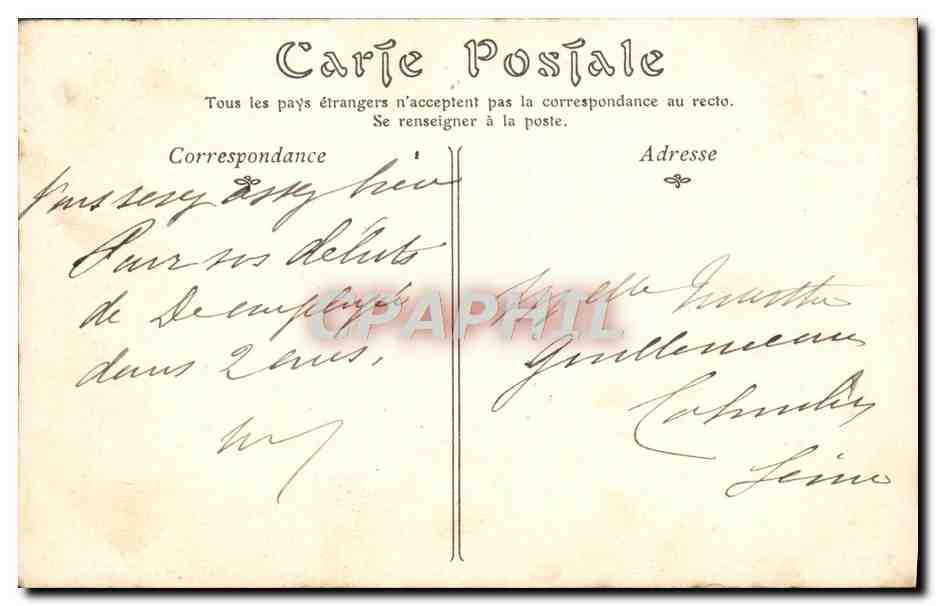 Carte Postale
Tous les pays étrangers n'acceptent pas la correspondance au recto.
Se renseigner à la poste.
Correspondance
Adresse
Vous serez assez bien
Pour vos débuts
de De employé
dans 2 ans.
CPAPHIL
Melle Marthe
Guillemeau
Colombes
Seine